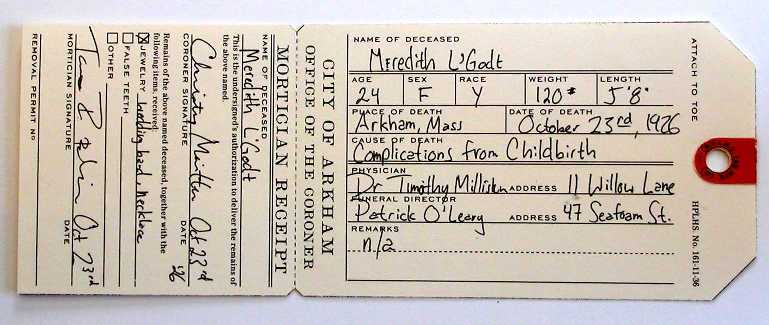 ATTACH TO TOE
HPLHS. No. 161-11-36
CITY OF ARKHAM
OFFICE OF THE CORONER
NAME OF DECEASED
Meredith L'Godt
AGE SEX RACE WEIGHT LENGTH
24 F Y 120# 5'8"
PLACE OF DEATH DATE OF DEATH
Arkham, Mass October 23rd, 1926
CAUSE OF DEATH
Complications from Childbirth
PHYSICIAN
Dr Timothy ADDRESS 11 Willow Lane
FUNERAL DIRECTOR
Patrick O'Leary ADDRESS 47 Seafoam St.
REMARKS
n/a
MORTICIAN RECEIPT
NAME OF DECEASED
Meredith L'Godt
This is the undersigned's authorization to deliver the remains of
the above named.
Oct 23rd
26
CORONER SIGNATURE DATE
Remains of the above named deceased, together with the
following items, received:
JEWELRY wedding band, necklace
FALSE TEETH
OTHER
Oct 23rd
MORTICIAN SIGNATURE DATE
REMOVAL PERMIT No